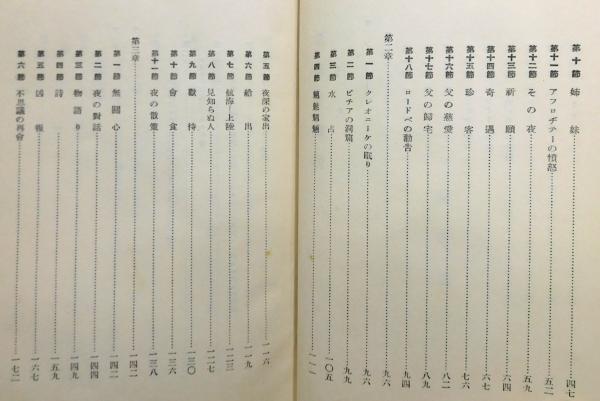 第十節 姉妹……四七
第十一節 アフロヂテーの憤怒……五二
第十二節 その夜……五九
第十三節 祈願……六四
第十四節 奇遇……六九
第十五節 珍客……七六
第十六節 父の慈愛……八二
第十七節 父の歸宅……八九
第十八節 ロードペの勸告……九四
第二章……九六
第一節 クレオニーケの眠り……九六
第二節 ピチアの洞窟……九九
第三節 水占……一〇五
第四節 魑魅魍魎……一一一
第五節 夜深の家出……一一六
第六節 船出……一一九
第七節 航海・上陸……一二三
第八節 見知らぬ人……一二七
第九節 歡待……一三〇
第十節 會食……一三六
第十一節 夜の散策……一三八
第三章……一四二
第一節 無關心……一四二
第二節 夜の對話……一四四
第三節 物語り……一四九
第四節 詩……一五九
第五節 凶報……一六七
第六節 不思議の再會……一七二